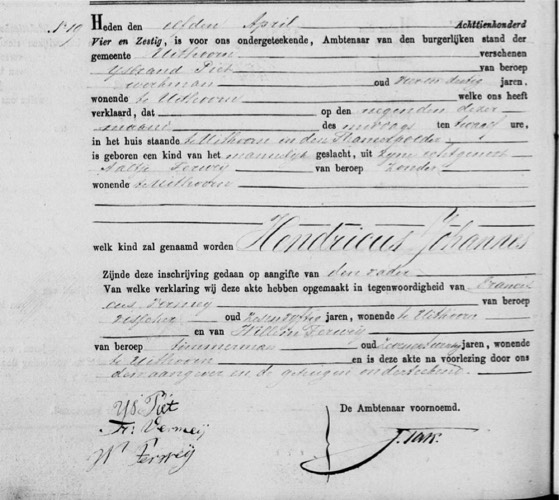 No 19
Heden den elfden April Achttienhonderd
Vier en Zestig, is voor ons ondergeteekende, Ambtenaar van den burgerlijken stand der
gemeente Uithoorn verschenen
IJsbrand Piët van beroep
werkman oud jaren,
wonende te Uithoorn welke ons heeft
verklaard, dat op den negenden dezer
maand des middags ten twaalf ure,
in het huis staande te Uithoorn in den
is geboren een kind van het mannelijk geslacht, uit zijne echtgenoot
Aaltje Ferweij van beroep zonder
wonende te Uithoorn
welk kind zal genaamd worden Hendricus Johannes
Zijnde deze inschrijving gedaan op aangifte van den vader
Van welke verklaring wij deze akte hebben opgemaakt in tegenwoordigheid van Francis
cus Vermeij van beroep
visscher oud jaren, wonende te Uithoorn
en van Willem Ferweij
van beroep timmerman oud jaren, wonende
te Uithoorn en is deze akte na voorlezing door ons
den aangever en de getuigen onderteekend.
De Ambtenaar voornoemd.
Ys Piët
Fr: Vermeij
W Ferweij